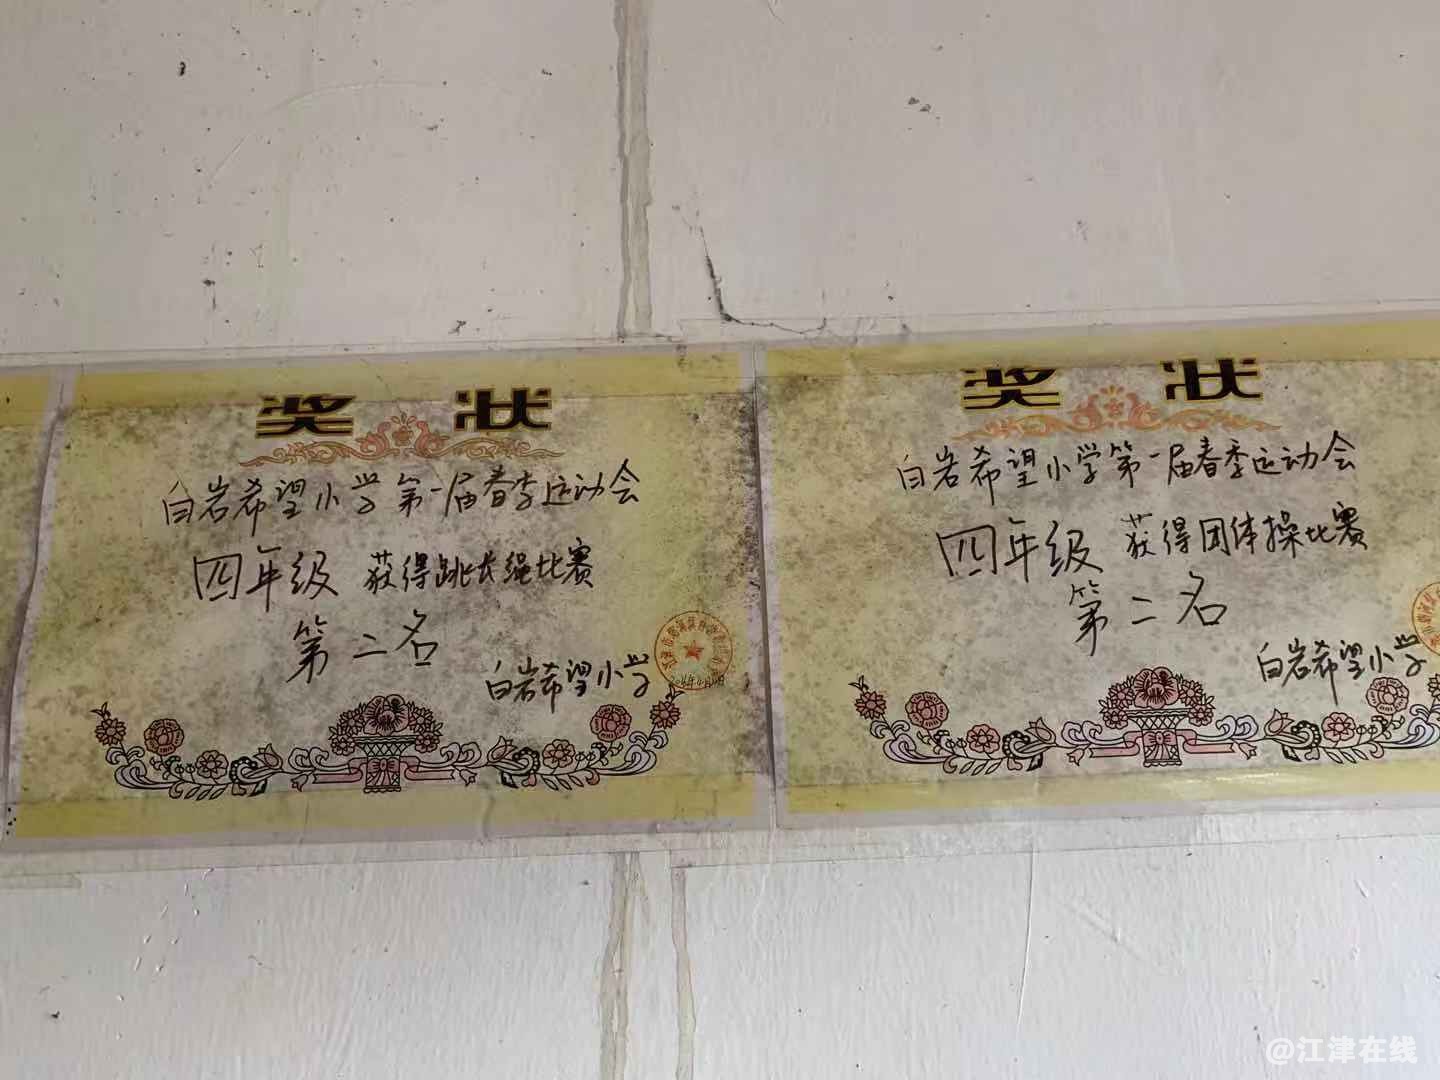 奖状
白岩希望小学第一届春季运动会
四年级 获得跳长绳比赛
第二名
白岩希望小学
奖状
白岩希望小学第一届春季运动会
四年级 获得团体操比赛
第二名
白岩希望小学
@江津在线